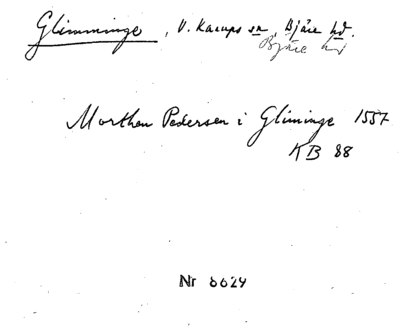 Glimminge, V. Karups sn, Bjäre hd.
Bjäre hd
Morthen Pedersen i Gliminge 1557
KB 88
Nr 6624